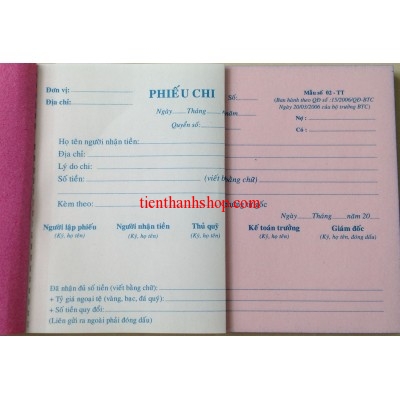 Đơn vị:
PHIẾU CHI
Mẫu số 02 - TT
Địa chỉ:
Số:
(Ban hành theo QĐ số : 15/2006/QĐ-BTC
Ngày 20/03/2006 của bộ trưởng BTC)
Ngày ...... Tháng ...... năm
Nợ :
Quyển số:
Có :
Họ tên người nhận tiền:
Địa chỉ:
Lý do chi:
Số tiền: (viết bằng chữ)
Kèm theo: gốc
tienthanhshop.com
Ngày ...... Tháng ...... năm 20.....
Người lập phiếu Người nhận tiền Thủ quỹ Kế toán trưởng Giám đốc
(Ký, họ tên) (Ký, họ tên) (Ký, họ tên) (Ký, họ tên) (Ký, họ tên, đóng dấu)
Đã nhận đủ số tiền (viết bằng chữ):
+ Tỷ giá ngoại tệ (vàng, bạc, đá quý):
+ Số tiền quy đổi:
(Liên gửi ra ngoài phải đóng dấu)